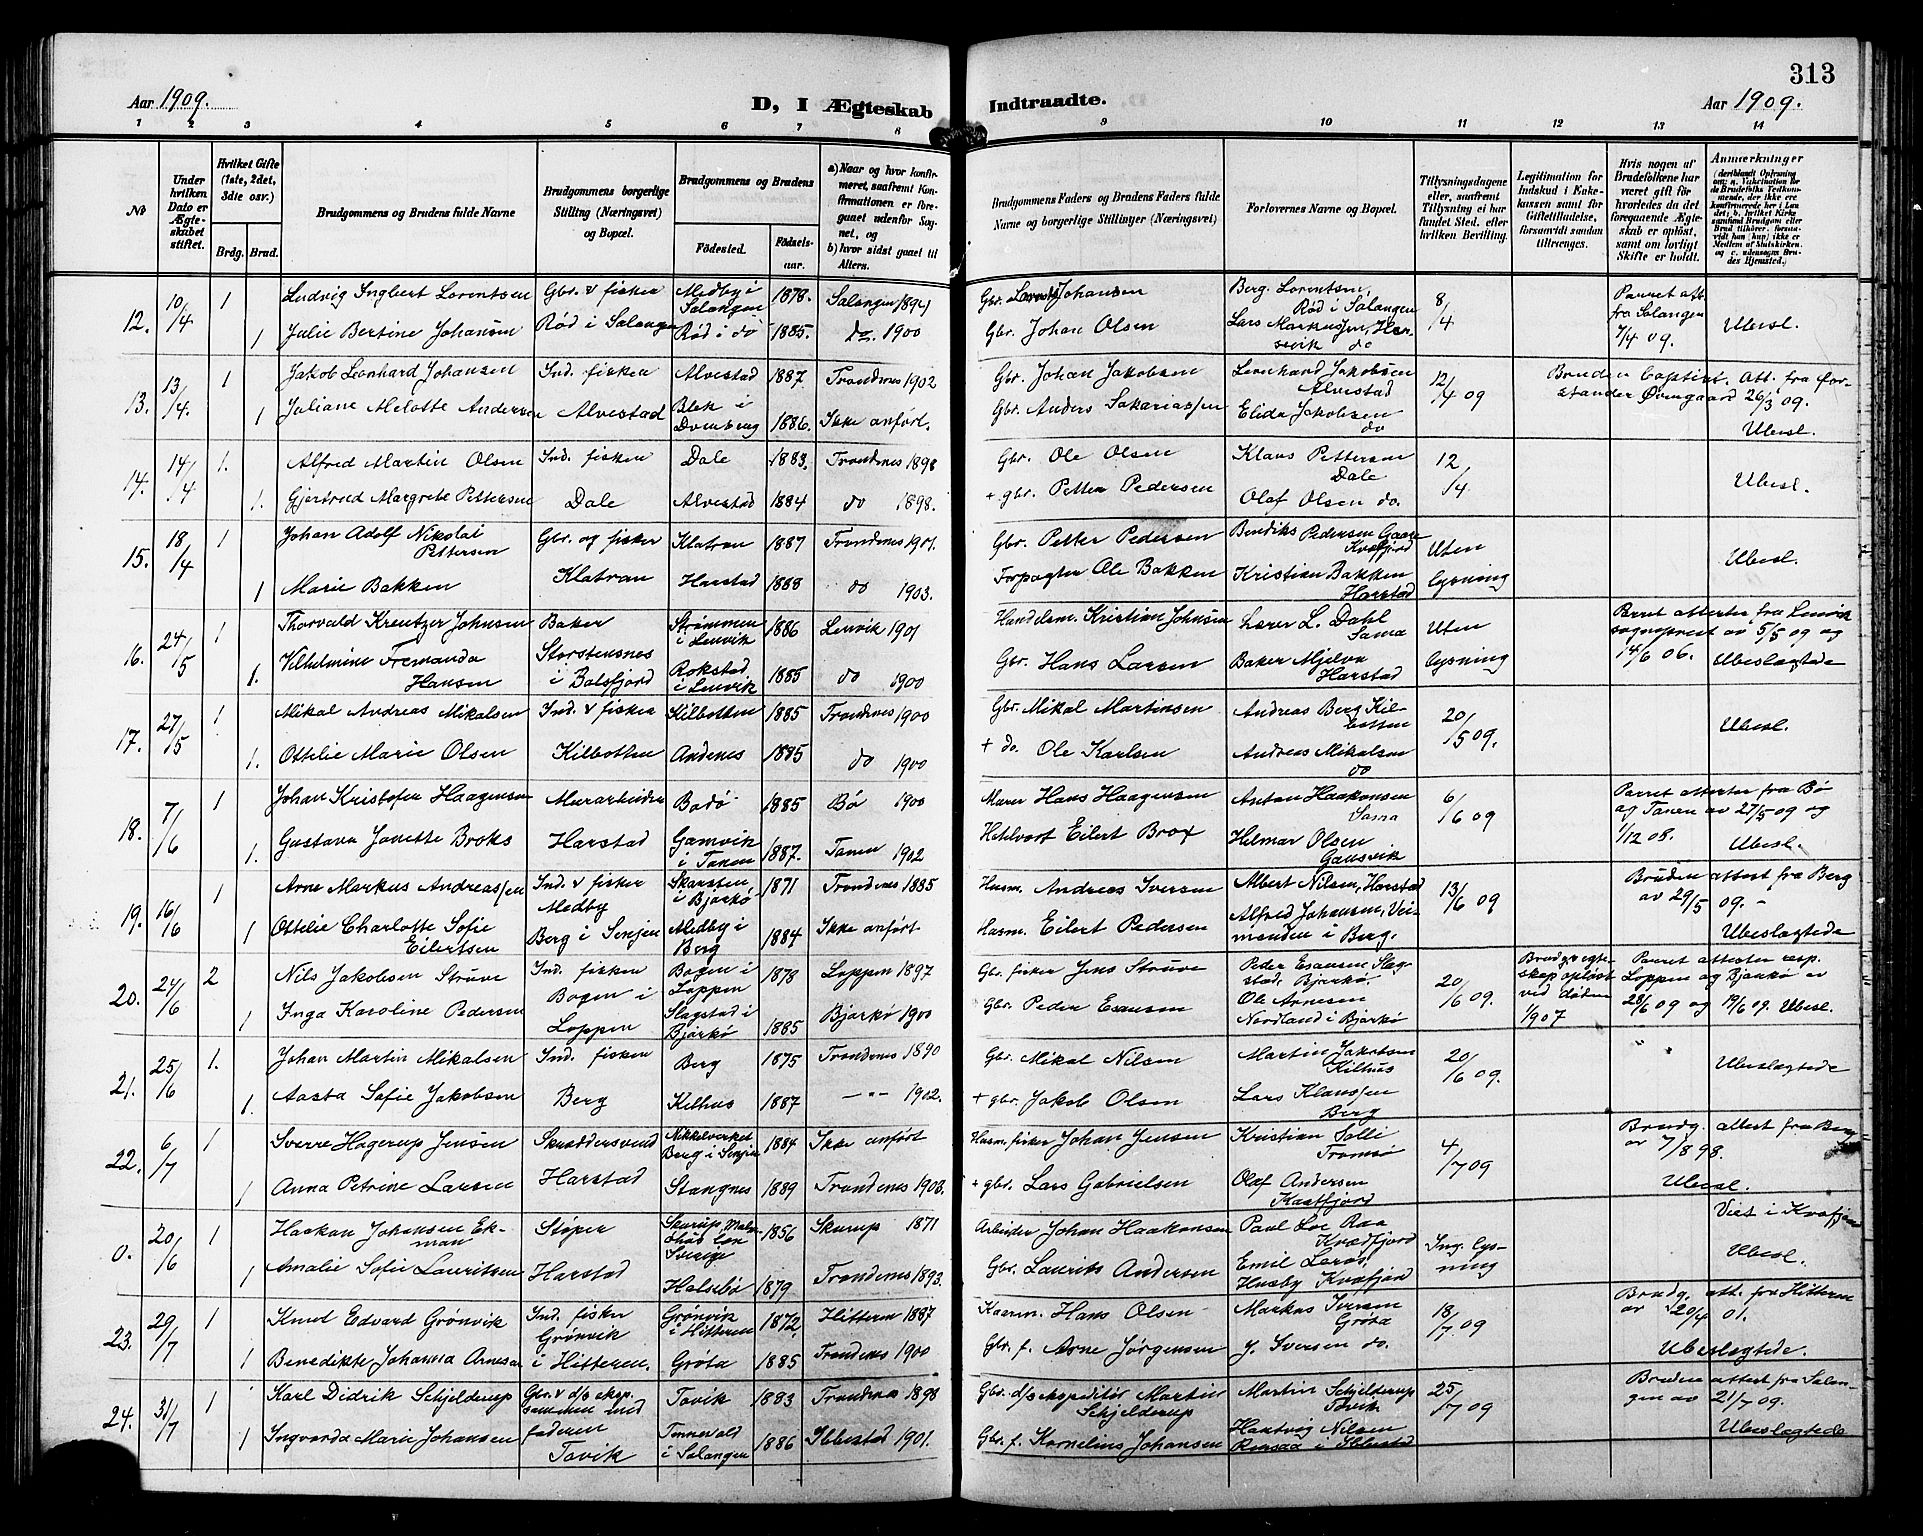 313
Aar 1909.
D, I Ægteskab
Indtraadte.
Aar 1909.
1 2 3 4 5 6 7 8 9 10 11 12 13 14
No
Under hvilken Dato er Ægteskabet stiftet.
Hvilket Gifte (1ste, 2det, 3die osv.)
Brdg. Brud.
Brudgommens og Brudens fulde Navne
Brudgommens borgerlige Stilling (Næringsvei) og Bopæl.
Brudgommens og Brudens
Födested.
Födselsaar.
a) Naar og hvor konfirmeret, saafremt Konfirmationen er foregaaet udenfor Sognet, og
b) hvor sidst gaaet til Alters.
Brudgommens Faders og Brudens Faders fulde Navne og borgerlige Stillinger (Næringsvei)
Forlovernes Navne og Bopæl.
Tillysningsdagene eller, saafremt Tillysning ei har fundet Sted, efter hvilken Bevilling.
Legitimation for Indskud i Enkekassen samt for Giftetilladelse, forsaavidt saadan tiltrænges.
Hvis nogen af Brudefolkene har været gift för hvorledes da det foregaaende Ægteskab er oplöst, samt om lovligt Skifte er holdt.
Anmerkninger
12. 10/4 1 Ludvig Ingbert Lorentsen Gbr. & fisker Medby i Salangen 1878. Salangen 1894 Gbr. Johansen Berg. Lorentsen, Rød i Salangen 8/4 Parret att. fra Salangen 7/4 09.
1 Julie Bertine Johansen Rød i Salangen Rød i do 1885. do. 1900 Gbr. Johan Olsen Lars Markussen, do Ubesl.
13. 13/4. 1 Jakob Leonhard Johansen Ind. fisker Alvestad 1887 Trondenes 1902 Gbr. Johan Jakobsen Leonhard Jakobsen Alvestad 12/4 09 Bruden baptist. Att. fra forstander Øvergaard 26/3 09.
1 Juliane Melotte Andersen Alvestad 1886. Ikke anført. Gbr. Anders Sakariassen Elida Jakobsen do Ubesl.
14. 14/4 1. Alfred Martin Olsen Ind. fisker Dale 1883. Trondenes 1898 Gbr. Ole Olsen Klaus Pettersen Dale 12/4
1. Gjertrud Margrete Pettersen Dale Alvestad 1884 do 1898. + gbr. Petter Pedersen Olaf Olsen do. Ubesl.
15. 18/4 1 Johan Adolf Nikolai Pettersen Gbr. og fisker Klatran 1887 Trondenes 1901. Gbr. Petter Pedersen Bendiks Pedersen Kvæfjord Uten
1 Marie Bakken Klatran Harstad 1888 do 1903. Forpagter Ole Bakken Kristian Bakken Harstad lysning Ubesl.
16. 24/5 1 Thorvald Kreutzer Johnsen Baker Strømmen i Lenvik 1886 Lenvik 1901 Handelsm. Kristian Johnsen Lærer L. Dahl Sama Uten Parret attester fra Lenvik sogneprest av 5/5 09 og
1. Vilhelmine Fremanda Hansen Storstensnes i Balsfjord Rokstad i Lenvik 1885 do 1900 Gbr. Hans Larsen Baker Mjelva Harstad lysning 14/6 06. Ubeslægtede
17. 27/5 1. Mikal Andreas Mikalsen Ind. & fisker Kilbotten 1885 Trondenes 1900 Gbr. Mikal Martinsen Andreas Berg Kilbotten 20/5 09.
1. Ottelie Marie Olsen Kilbotten Andenes 1885 do 1900 + do. Ole Karlsen Andreas Mikalsen do Ubesl.
18. 7/6 1 Johan Kristofer Haagensen Murarbeider Bodø 1885 Bø 1900 Murer Hans Haagensen Anton Haakonsen Sama 6/6 09 Parret attester fra Bø og Tanen av 27/5 09 og
1. Gustava Janette Broks Harstad Gamvik i Tanen 1887. Tanen 1902 Hotelvært Eilert Brox Hilmar Olsen Gausvik 1/12 08. Ubesl.
19. 16/6 1 Arne Markus Andreassen Ind. & fisker Medby Skarsten, i Bjarkø 1871 Trondenes 1885 Husm. Andreas Iversen Albert Nilsen, Harstad 13/6 09 Bruden attest fra Berg av 29/5 09.
1 Ottelie Charlotte Sofie Eilertsen Berg i Senjen Medby i Berg 1884 Ikke anført Husm. Eilert Pedersen Alfred Johansen, i Berg. Ubeslægtede
20. 24/6 2 Nils Jakobsen Struve Ind. fisker Bogen i Loppen 1878 Loppen 1897 Gbr. fisker Jens Struve Peder Esausen Slagstad, Bjarkø. 20/6 09. Brudgs egteskap opløst ved døden 1/1907 Parret attester resp. Loppen og Bjarkø av
1 Inga Karoline Pedersen Bogen i Loppen Slagstad i Bjarkø 1885 Bjarkø 1900 Gbr. Peder Esausen Ole Arnesen Nordland i Bjarkø 28/6 09 og 19/6 09. Ubesl.
21. 25/6 1. Johan Martin Mikalsen Ind. fisker Berg 1875 Trondenes 1890 Gbr. Mikal Nilsen Martin Jakobsen Kilhus 20/6 09.
1. Aasta Sofie Jakobsen Berg Kilhus 1887 —"— 1902. + gbr. Jakob Olsen Lars Klaussen Berg Ubeslægtede
22. 6/7 1 Sverre Hagerup Jensen Skræddersvend Nikkelverket Berg i Senjen 1884 Ikke anført Husm. fisker Johan Jensen Kristian Solli Tromsø 4/7 09 Brudg. attest fra Berg av 7/8 98.
1 Anna Petrine Larsen Harstad Stangnes 1889 Trondenes 1903. + gbr. Lars Gabrielsen Olaf Andersen Kaafjord Ubesl.
0. 20/6 1 Haakan Johansen Ekman Støper Skurup, Malmøhus län Sverige 1856 Skurup 1871 Arbeider Johan Haakonsen Paul Loe Raa Kvædfjord Ing. lysning Viet i Kvæfjord
1 Amalie Sofie Lauritsen Harstad Halsebø 1879 Trondenes 1893. Gbr. Laurits Andersen Emil Leros, Husby Kvæfjord Ubesl.
23. 29/7 1 Knut Edvard Grønvik Ind. fisker Grønvik Grønvik i Hitteren 1872. Hitteren 1887 Kaarm. Hans Olsen Markus Iversen Grøta 18/7 09 Brudg. att. fra Hitteren av 20/4 01.
1 Benedikte Johanna Arnesen i Hitteren. Grøta 1885 Trondenes 1900 Gbr. f. Arne Jørgensen J. Iversen do. Ubeslægtede.
24. 31/7 1 Karl Didrik Schjelderup Gbr. & d/s eksp. sammen med Tovik 1883 Trondenes 1898 Gbr. d/s ekspeditør Martin Schjelderup Martin Schjelderup Tovik 25/7 09 Bruden attest fra Salangen av 21/7 09.
1 Ingvarda Marie Johansen faderen Tovik i Salangen 1886 Ibbestad 1901. Gbr. f. Kornelius Johansen Hartvig Nilsen i Ibbestad Ubeslægtede